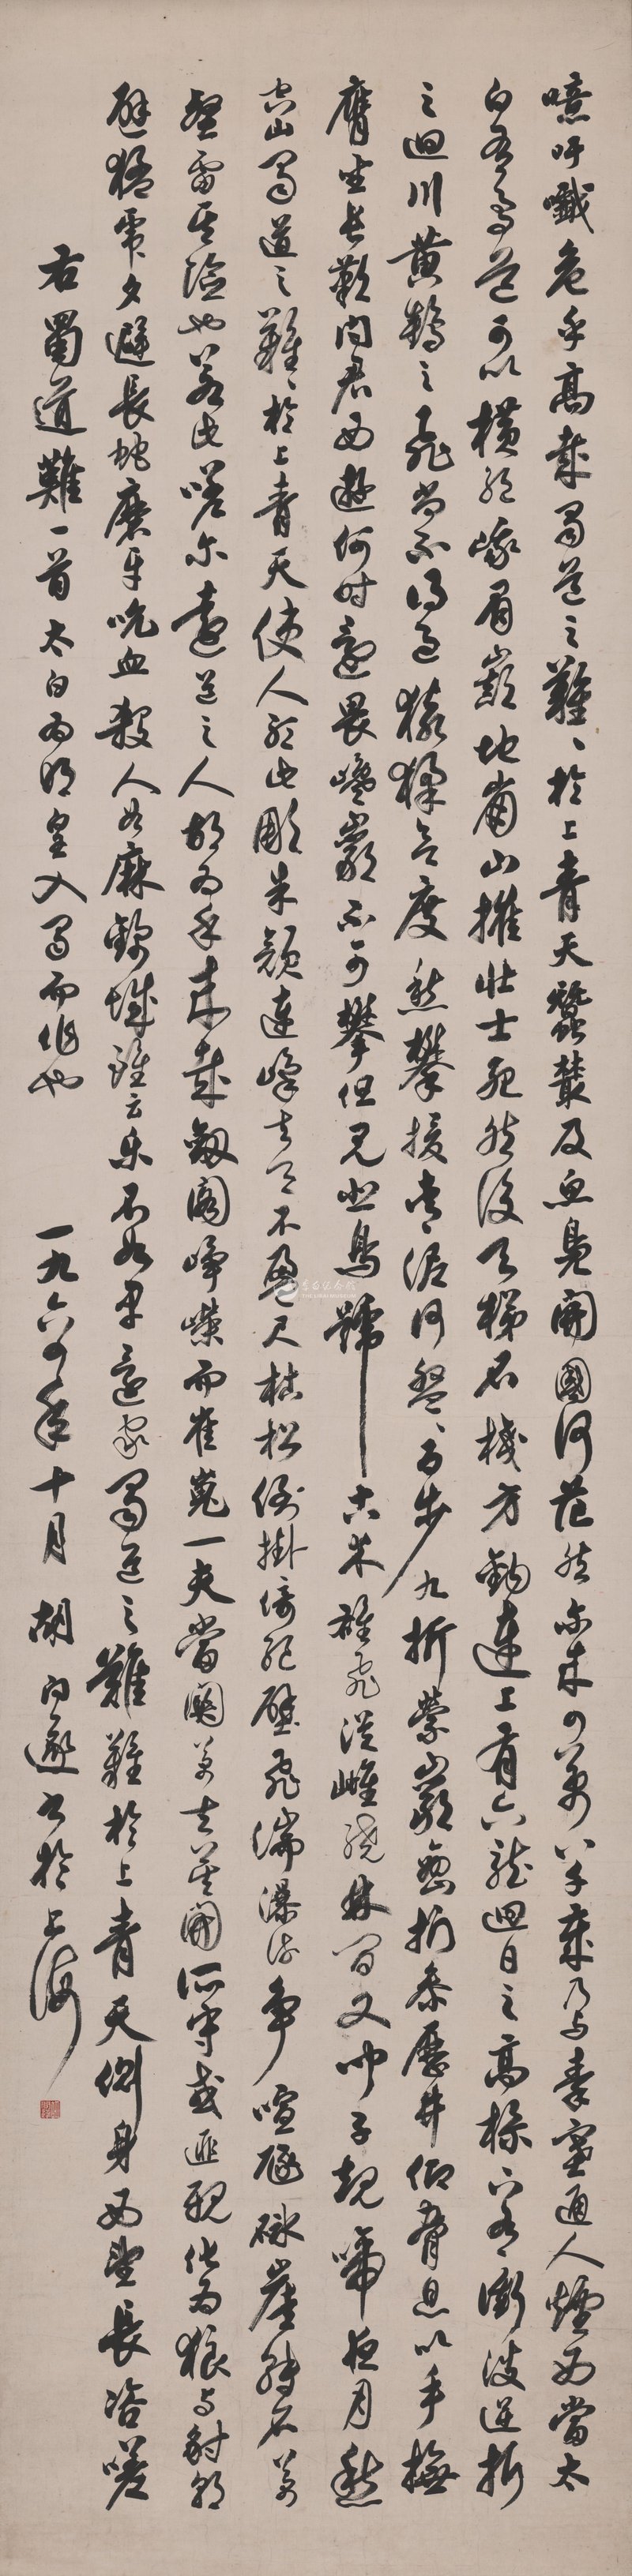 噫吁戲危乎高哉蜀道之難、於上青天蠶叢及魚鳧開國何茫然爾來四萬八千歲乃与秦塞通人煙西當太
白有鳥道可以橫絕峨眉巔地崩山摧壯士死然後天梯石棧方鉤連上有六龍迴日之高標下有衝波逆折
之迴川黄鶴之飛尚不得過猿猱欲度愁攀援青泥何盤、百步九折縈巖巒捫參歷井仰脅息以手撫
膺坐長歎问君西遊何时還畏途巉巖不可攀但見悲鳥號古木雄飛從雌繞林间又闻子規啼夜月愁
空山蜀道之難、於上青天使人聽此凋朱顏連峰去天不盈尺枯松倒掛倚絕壁飛湍瀑流争喧豗砯崖轉石萬
壑雷其險也若此嗟尔遠道之人胡为乎來哉劍阁崢嶸而崔嵬一夫當關萬夫莫開所守或匪親化为狼与豺朝
避猛虎夕避長蛇磨牙吮血殺人如麻錦城雖云乐不如早還家蜀道之難難於上青天側身西望長咨嗟
右蜀道難一首太白为明皇入蜀而作也
一九六四年十月胡问遂书於上海